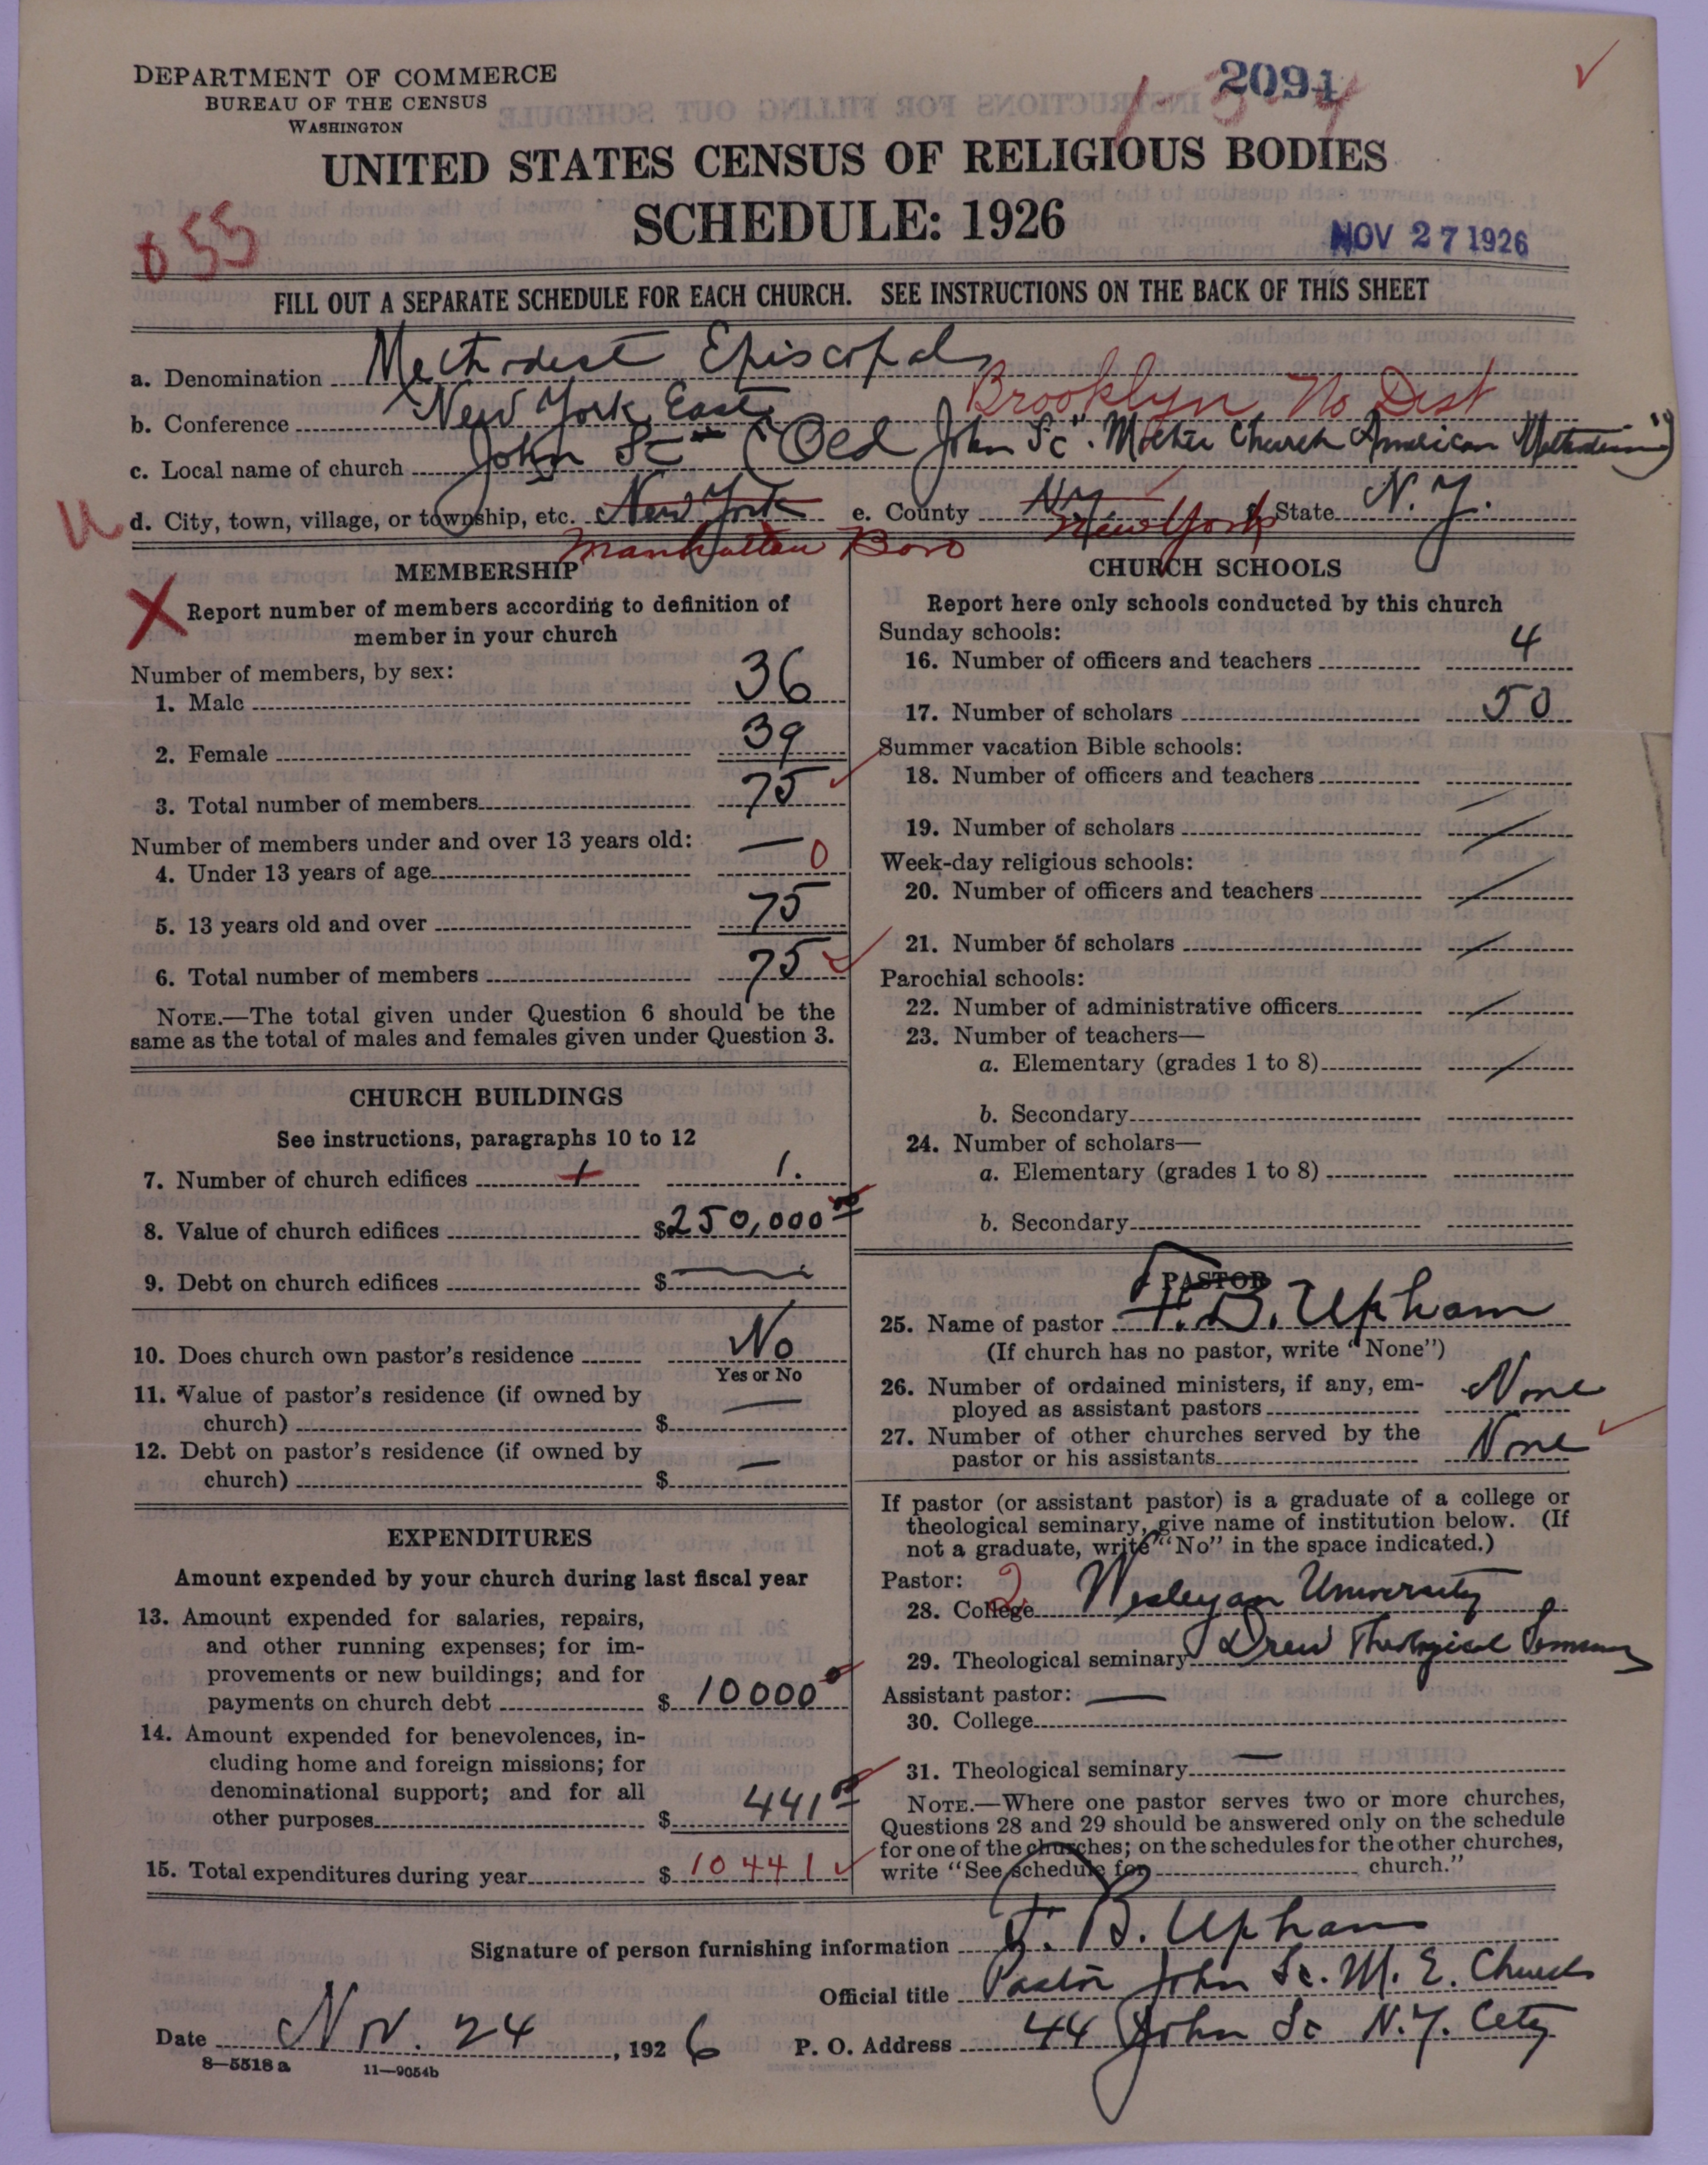 DEPARTMENT OF COMMERCE
BUREAU OF THE CENSUS
WASHINGTON
2094
1-3-4
UNITED STATES CENSUS OF RELIGIOUS BODIES
SCHEDULE: 1926
NOV 27 1926
055
FILL OUT A SEPARATE SCHEDULE FOR EACH CHURCH. SEE INSTRUCTIONS ON THE BACK OF THIS SHEET
a. Denomination Methodist Episcopal
b. Conference New York East Brooklyn No Dist
c. Local name of church John St ("Old John St". Mother Church American Methodism")
u d. City, town, village, or township, etc. New York e. County N.Y. New York f. State N.Y.
Manhattan Boro
MEMBERSHIP
X Report number of members according to definition of
member in your church
Number of members, by sex:
1. Male 36
2. Female 39
3. Total number of members 75
Number of members under and over 13 years old:
4. Under 13 years of age — 0
5. 13 years old and over 75
6. Total number of members 75
NOTE.—The total given under Question 6 should be the
same as the total of males and females given under Question 3.
CHURCH BUILDINGS
See instructions, paragraphs 10 to 12
7. Number of church edifices 1 1.
8. Value of church edifices $250,000 00
9. Debt on church edifices $ —
10. Does church own pastor's residence No
Yes or No
11. Value of pastor's residence (if owned by
church) $ —
12. Debt on pastor's residence (if owned by
church) $ —
EXPENDITURES
Amount expended by your church during last fiscal year
13. Amount expended for salaries, repairs,
and other running expenses; for im-
provements or new buildings; and for
payments on church debt $ 10000
14. Amount expended for benevolences, in-
cluding home and foreign missions; for
denominational support; and for all
other purposes $ 441 00
15. Total expenditures during year $ 10441
CHURCH SCHOOLS
Report here only schools conducted by this church
Sunday schools:
16. Number of officers and teachers 4
17. Number of scholars 50
Summer vacation Bible schools:
18. Number of officers and teachers
19. Number of scholars
Week-day religious schools:
20. Number of officers and teachers
21. Number of scholars
Parochial schools:
22. Number of administrative officers
23. Number of teachers—
a. Elementary (grades 1 to 8)
b. Secondary
24. Number of scholars—
a. Elementary (grades 1 to 8)
b. Secondary
PASTOR
25. Name of pastor F. B. Upham
(If church has no pastor, write "None")
26. Number of ordained ministers, if any, em-
ployed as assistant pastors None
27. Number of other churches served by the
pastor or his assistants None
If pastor (or assistant pastor) is a graduate of a college or
theological seminary, give name of institution below. (If
not a graduate, write "No" in the space indicated.)
Pastor: 2
28. College Wesleyan University
29. Theological seminary Drew Theological Seminary
Assistant pastor: —
30. College
31. Theological seminary —
NOTE.—Where one pastor serves two or more churches,
Questions 28 and 29 should be answered only on the schedule
for one of the churches; on the schedules for the other churches,
write "See schedule for church."
Signature of person furnishing information F. B. Upham
Official title Pastor John St. M. E. Church
Date Nov. 24, 1926 P. O. Address 44 John St N.Y. City
8—5518 a 11—9054b